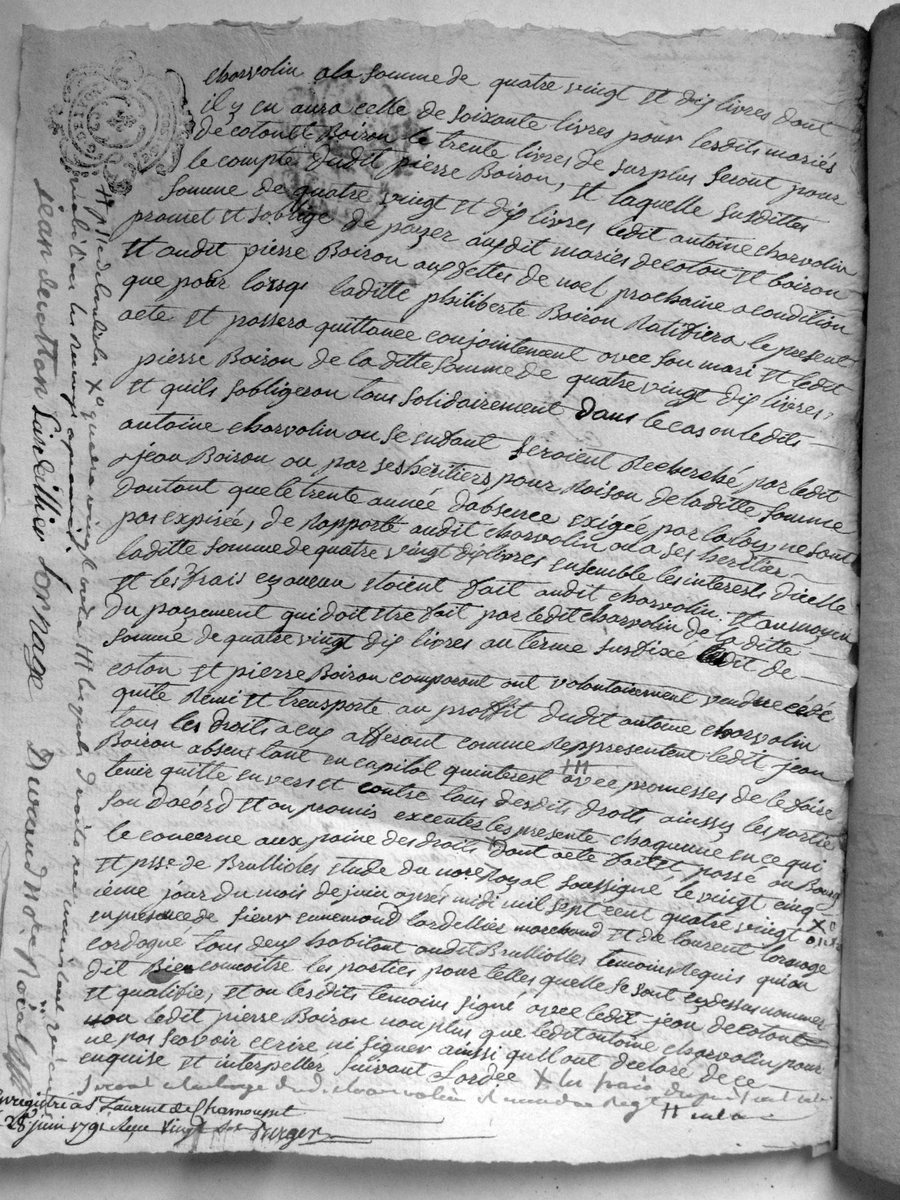 chorvolin a la somme de quatre vingt et dix livres dont
il y en aura celle de soixante livres pour lesdits mariés
decoton et Boiron le trente livres de surplus seront pour
le compte dudit pierre Boiron, et laquelle susditte
somme de quatre vingt et dix livres ledit antoine chorvolin
promet et soblige de payer auxdit mariés decoton et boiron
et audit pierre Boiron aux fettes de noel prochaine a condition
que pour lorsqe laditte philiberte Boiron Ratifiera le present
acte et passera quittance conjointement avec son mari et ledit
pierre Boiron de la ditte somme de quatre vingt dix livres,
et quils sobligeron tous solidairement dans le cas ou ledits
antoine chorvolin ou se enfant seroient Recherché par ledit
jean Boiron ou par ses heritiers pour Raison de laditte somme
dautant que le trente année dabsence exigée par la loy ne sont
pas expirée, de Rapporté audit chorvolin ou a ses heritier
laditte somme de quatre vingt dix livres ensemble les interests dicelle
et les frais cy aucun etoient fait audit chorvolin. et au moyen
du payement qui doit etre fait par ledit chorvolin de la ditte
somme de quatre vingt dix livres au terme susdixé ledit de
coton et pierre Boiron comparant ont volontairement vendu cédé
quité Remi et transporté au proffit dudit antoine chorvolin
tous les droits a eux afferant comme Reppresentent ledit jean
Boiron absens tant en capital quinterest avec promesses de le faire
III
tenir quitte envers et contre tous desdits droits ainsy les partie
son dacord et on promis executer les presente chaqunne en ce qui
le concerne aux paine des droits dont acte fait et passé au Bourg
et psse de Brullioles etude du nore Royal soussigné le vingt cinq
ieme jour du mois de juin après midi mil sept cent quatre vingt onze Xe
en presence de sieur ennemond lardellier marchand et de laurent lornage
cordogné tous deux habitant audit Brullioles temoins Requis qui on
dit Bien conoitre les parties pour telles quelle se sont cy dessus nommer
et qualifié, et on lesdits temoins signé avec ledit jean decoton
non ledit pierre Boiron non plus que ledit antoine chorvolin pour
ne pas scavoir ecrire ni signer ainsi quil ont declaré de ce
enquise et interpellés suivant lordce X les frais du present
seront a la charge dud. chorvolin
enregistré a St Laurent de Chamousset
le 28 juin 1791 Reçu vingt Sols Purger
jean decotton Lardellier Lornage Durand nore Roial